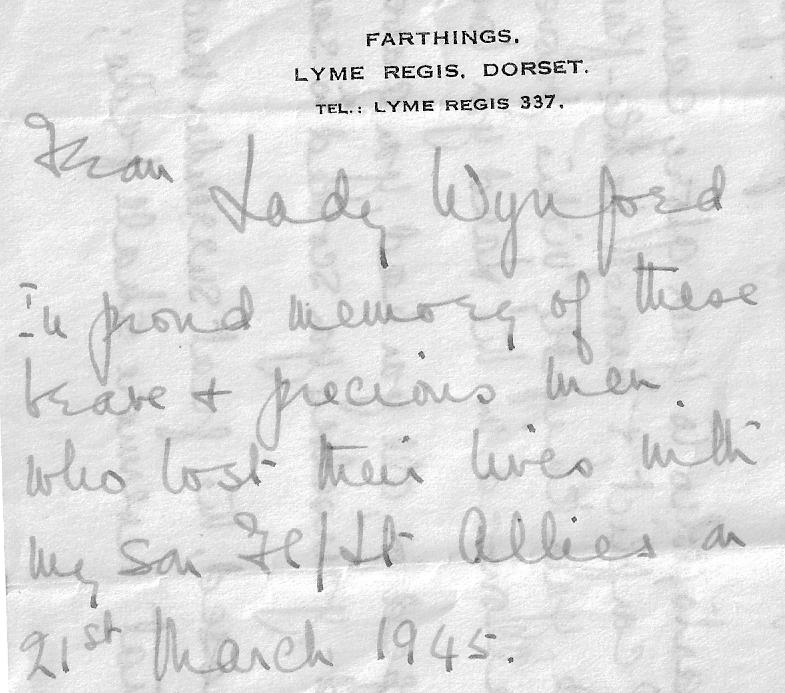 FARTHINGS,
LYME REGIS, DORSET.
TEL.: LYME REGIS 337.
From Lady Wynford
In proud memory of these
brave + precious men
who lost their lives with
my son Fl/Lt Allies on
21st March 1945.